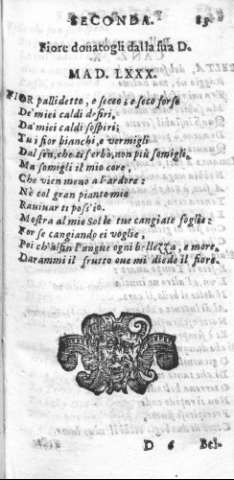 SECONDA. 83
Fiore donatogli dalla sua D.
MAD. LXXX.
FIOR pallidetto, e secco; e seco forse
De' miei caldi desiri,
Da' miei caldi sospiri;
Tu i fior bianchi, e vermigli
Dal sen, che ti serbò, non più somigli.
Ma somigli il mio core,
Che vien meno a l'ardore:
Nè col gran pianto mio
Rauiuar ti poss'io.
Mostra al mio Sol le tue cangiate foglie:
Forse cangiando ei voglie,
Poi ch'al fin l'angue ogni bellezza, e more,
Darammi il frutto oue mi diede il fiore.
D 6 Bel-